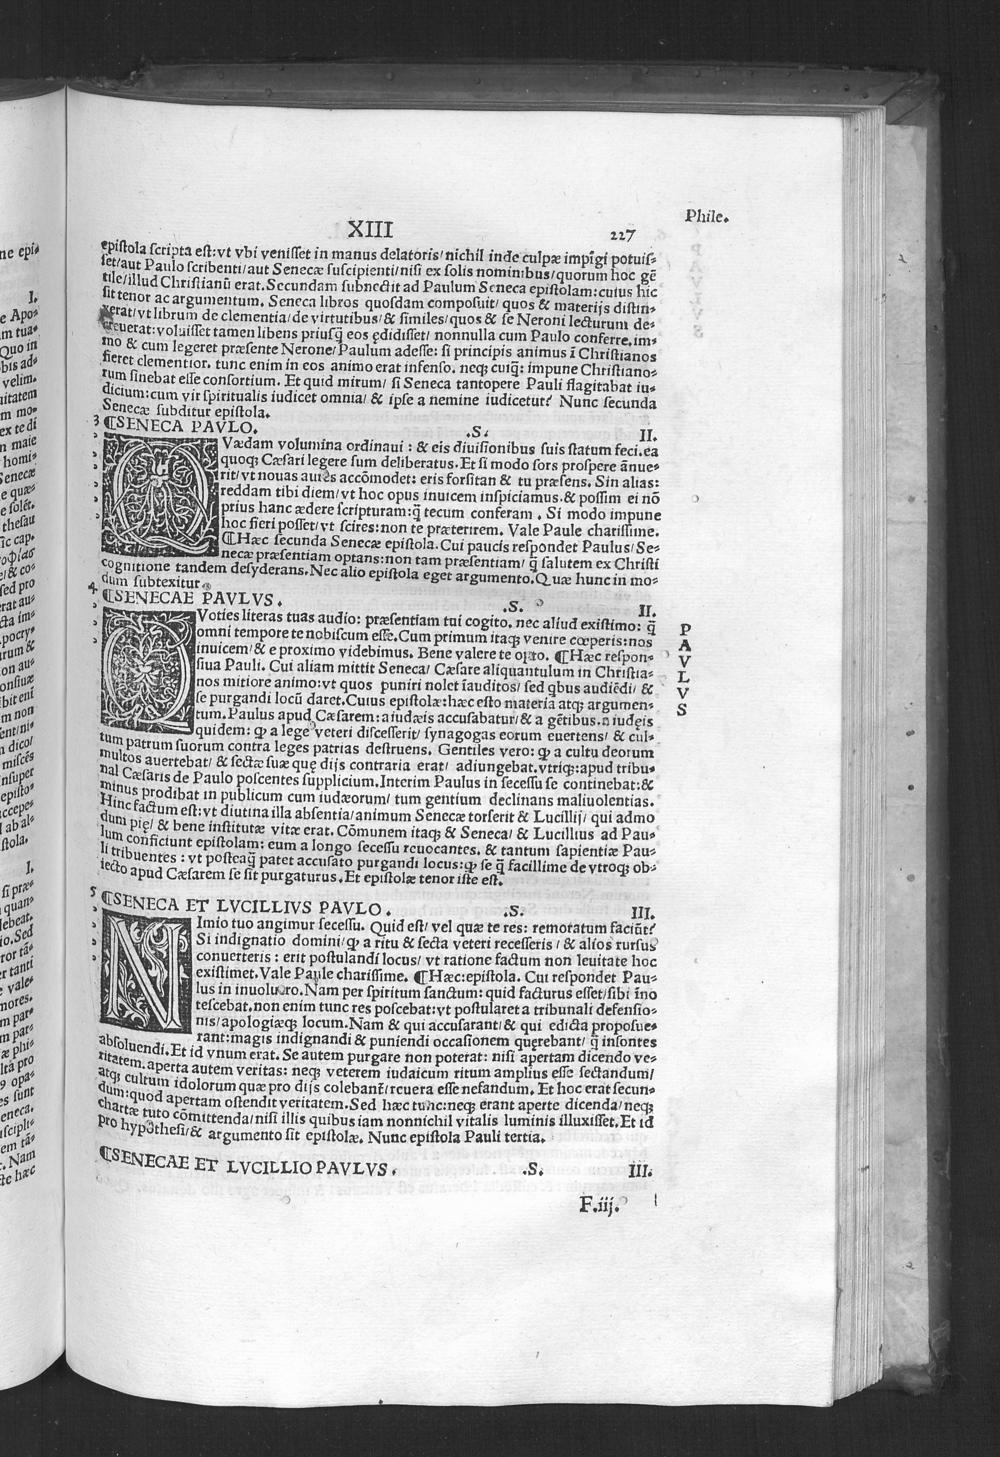 Phile.
XIII
227
epistola scripta est: vt vbi venisset in manus delatoris/ nichil inde culpæ impīgi potuis⸗
set/ aut Paulo scribenti/ aut Senecæ suscipienti/ nisi ex solis nominibus/ quorum hoc gē
tile/ illud Christianū erat. Secundam subnectit ad Paulum Seneca epistolam: cuius hic
sit tenor ac argumentum. Seneca libros quosdam composuit/ quos & materijs distin⸗
xerat/ vt librum de clementia/ de virtutibus/ & similes/ quos & se Neroni lecturum de⸗
creuerat: voluisset tamen libens priusq̄ eos ędidisset/ nonnulla cum Paulo conferre. im⸗
mo & cum legeret præsente Nerone/ Paulum adesse: si principis animus ī Christianos
fieret clementior. tunc enim in eos animo erat infenso. neq; cuiq̄: impune Christiano⸗
rum sinebat esse consortium. Et quid mirum/ si Seneca tantopere Pauli flagitabat iu⸗
dicium: cum vir spiritualis iudicet omnia/ & ipse a nemine iudicetur? Nunc secunda
Senecæ subditur epistola.
3 ¶SENECA PAVLO. .S. II.
QVædam volumina ordinaui: & eis diuisionibus suis statum feci. ea
quoq; Cæsari legere sum deliberatus. Et si modo sors prospere ānue⸗
rit/ vt nouas aures accōmodet: eris forsitan & tu præsens. Sin alias:
reddam tibi diem/ vt hoc opus inuicem inspiciamus. & possim ei nō
prius hanc ædere scripturam: q̄ tecum conferam. Si modo impune
hoc fieri posset/ vt scires: non te præterirem. Vale Paule charissime.
¶Hæc secunda Senecæ epistola. Cui paucis respondet Paulus/ Se⸗
necæ præsentiam optans: non tam præsentiam/ q̄ salutem ex Christi
cognitione tandem desyderans. Nec alio epistola eget argumento. Quæ hunc in mo⸗
dum subtexitur.
4 ¶SENECAE PAVLVS. .S. II.
QVoties literas tuas audio: præsentiam tui cogito. nec aliud existimo: q̄
omni tempore te nobiscum esse. Cum primum itaq; venire cœperis: nos
inuicem/ & e proximo videbimus. Bene valere te opto. ¶Hæc respon⸗
siua Pauli. Cui aliam mittit Seneca/ Cæsare aliquantulum in Christia⸗
nos mitiore animo: vt quos puniri nolet īauditos/ sed qbus audiēdi/ &
se purgandi locū daret. Cuius epistolæ: hæc esto materia atq; argumen⸗
tum. Paulus apud Cæsarem: a iudæis accusabatur/ & a gētibus. a iudęis
quidem: ꝙ a lege veteri discesserit/ synagogas eorum euertens/ & cul⸗
tum patrum suorum contra leges patrias destruens. Gentiles vero: ꝙ a cultu deorum
multos auertebat/ & sectæ suæ quę dijs contraria erat/ adiungebat. vtriq;: apud tribu⸗
nal Cæsaris de Paulo poscentes supplicium. Interim Paulus in secessu se continebat: &
minus prodibat in publicum cum iudæorum/ tum gentium declinans maliuolentias.
Hinc factum est: vt diutina illa absentia/ animum Senecæ torserit & Lucillij/ qui admo
dum pię/ & bene institutæ vitæ erat. Cōmunem itaq; & Seneca/ & Lucillius ad Pau⸗
lum conficiunt epistolam: eum a longo secessu reuocantes. & tantum sapientiæ Pau⸗
li tribuentes: vt posteaq̄ patet accusato purgandi locus: ꝙ se q̄ facillime de vtroq; ob⸗
iecto apud Cæsarem se sit purgaturus. Et epistolæ tenor iste est.
P
A
V
L
V
S
5 ¶SENECA ET LVCILLIVS PAVLO. .S. III.
NImio tuo angimur secessu. Quid est/ vel quæ te res: remotatum faciūt?
Si indignatio domini/ ꝙ a ritu & secta veteri recesseris/ & alios rursus
conuerteris: erit postulandi locus/ vt ratione factum non leuitate hoc
existimet. Vale Paule charissime. ¶Hæc: epistola. Cui respondet Pau⸗
lus in inuolucro. Nam per spiritum sanctum: quid facturus esset/ sibi īno
tescebat. non enim tunc res poscebat: vt postularet a tribunali defensio⸗
nis/ apologiæq; locum. Nam & qui accusarant/ & qui edicta proposue⸗
rant: magis indignandi & puniendi occasionem quęrebant/ q̄ insontes
absoluendi. Et id vnum erat. Se autem purgare non poterat: nisi apertam dicendo ve⸗
ritatem. aperta autem veritas: neq; veterem iudaicum ritum amplius esse sectandum/
atq; cultum idolorum quæ pro dijs colebant̄/ reuera esse nefandum. Et hoc erat secun⸗
dum: quod apertam ostendit veritatem. Sed hæc tunc: neq; erant aperte dicenda/ neq;
chartæ tuto cōmittenda/ nisi illis quibus iam nonnichil vitalis luminis illuxisset. Et id
pro hypothesi/ & argumento sit epistolæ. Nunc epistola Pauli tertia.
¶SENECAE ET LVCILLIO PAVLVS. .S. III.
F.iij.